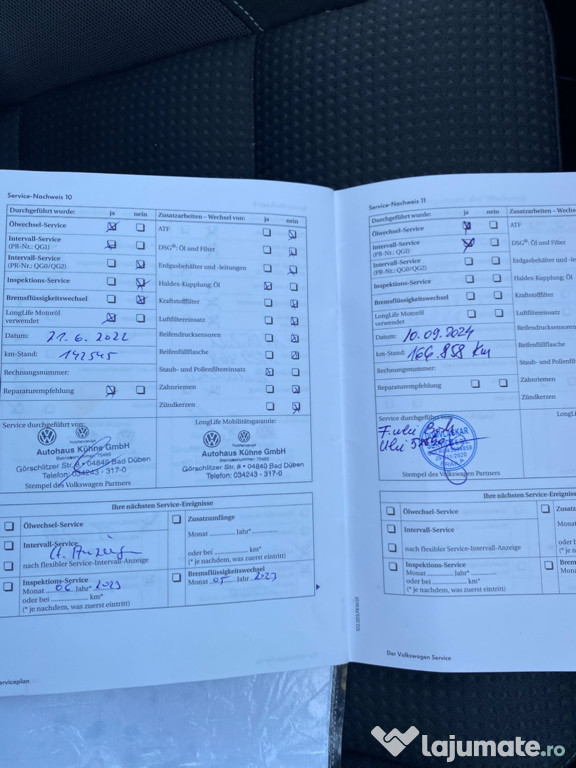 Service-Nachweis 10
Durchgeführt wurde: ja nein
Zusatzarbeiten – Wechsel von: ja nein
Ölwechsel-Service
ATF
Intervall-Service
(PR-Nr.: QG1)
DSG®: Öl und Filter
Intervall-Service
(PR-Nr.: QG0/QG2)
Erdgasbehälter und -leitungen
Inspektions-Service
Haldex-Kupplung: Öl
Bremsflüssigkeitswechsel
Kraftstofffilter
LongLife Motoröl
verwendet
Luftfiltereinsatz
Datum: 21.6.2022
Reifendrucksensoren
km-Stand: 142545
Reifenfüllflasche
Rechnungsnummer:
Staub- und Pollenfiltereinsatz
Reparaturempfehlung
Zahnriemen
Zündkerzen
Service durchgeführt von:
LongLife Mobilitätsgarantie:
Autohaus Kühne GmbH
Görschlitzer Str. 8 • 04849 Bad Düben
Telefon: 034243 - 317-0
Stempel des Volkswagen Partners
Autohaus Kühne GmbH
Betriebsnummer 75460
Görschlitzer Str. 8 • 04849 Bad Düben
Telefon: 034243 - 317-0
Ihre nächsten Service-Ereignisse
Ölwechsel-Service
Zusatzumfänge
Monat Jahr*
Intervall-Service
nach flexibler Service-Intervall-Anzeige
oder bei km*
(* je nachdem, was zuerst eintritt)
Inspektions-Service
Monat 06 Jahr* 2023
oder bei km*
(* je nachdem, was zuerst eintritt)
Bremsflüssigkeitswechsel
Monat 05 Jahr 2023
Serviceplan
Service-Nachweis 11
Durchgeführt wurde: ja nein
Zusatzarbeiten – Wechsel
Ölwechsel-Service
ATF
Intervall-Service
(PR-Nr.: QG1)
DSG®: Öl und Filter
Intervall-Service
(PR-Nr.: QG0/QG2)
Erdgasbehälter und -l
Inspektions-Service
Haldex-Kupplung: Öl
Bremsflüssigkeitswechsel
Kraftstofffilter
LongLife Motoröl
verwendet
Luftfiltereinsatz
Datum: 10.09.2024
Reifendrucksensore
km-Stand: 166.858 Km
Reifenfüllflasche
Rechnungsnummer:
Staub- und Pollenf
Reparaturempfehlung
Zahnriemen
Zündkerzen
Service durchgeführt
LongLife Mob
Stempel des Volkswagen Partners
Ihre nächsten Service-E
Ölwechsel-Service
Zusa
Monat
Intervall-Service
nach flexibler Service-Intervall-Anzeige
oder be
(* je na
Inspektions-Service
Monat Jahr*
oder bei km*
(* je nachdem, was zuerst eintritt)
Brem
Monat
Der Volkswagen Service
lajumate.ro